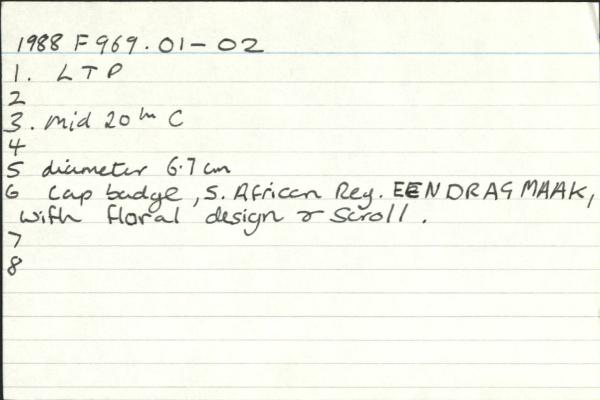 1988 F969.01-02
1. LTP
2
3. mid 20th C
4
5 diameter 6.7cm
6 Cap badge, S. African Reg. EENDRAG MAAK,
with floral design & scroll.
7
8